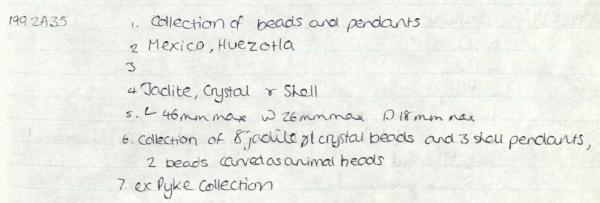 199.2A35 1. Collection of beads and pendants
2 Mexico, Huezotla
3
4 Jadite, Crystal & Shell
5. L 46mm max W 26mm max D 18mm max
6. Collection of 8 jadite, 1 crystal beads and 3 shell pendants,
2 beads carved as animal heads
7. ex Pyke Collection